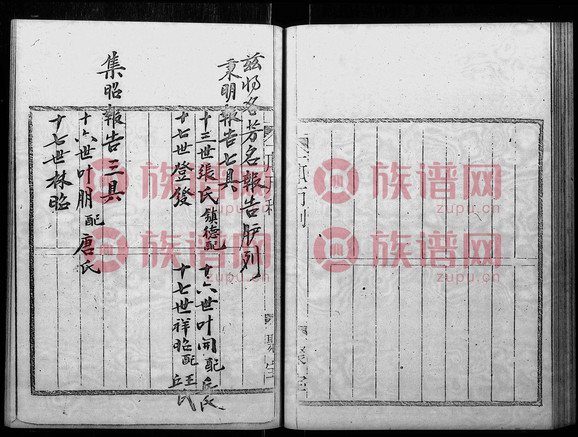 兹将各芳名報告胪列
秉明報告七具
十三世張氏鎮德配
十六世叶開配
十七世登發
十七世祥昭配王氏
集昭報告三具
十六世叶朋配唐氏
十七世林昭
族谱网
zupu.cn
族谱网
zupu.cn
族谱网
zupu.cn
族谱网
zupu.cn